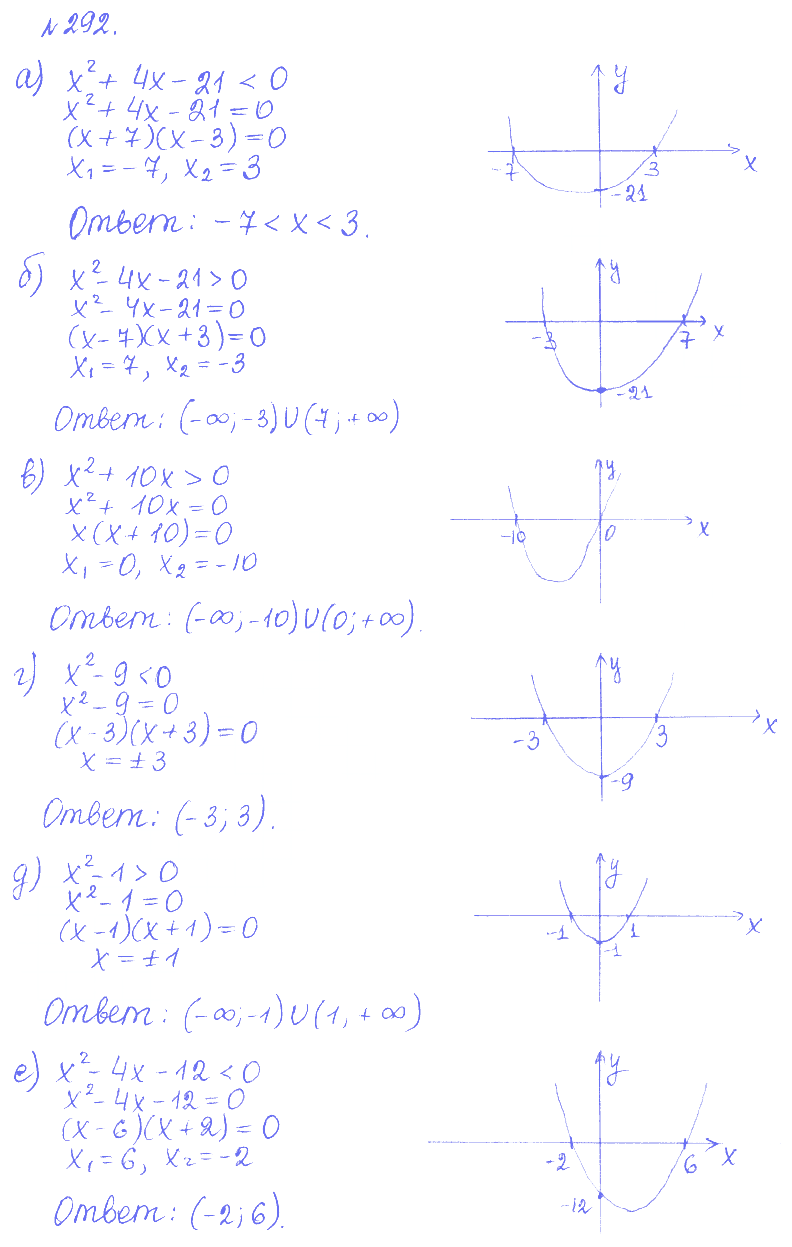 № 292.
а) x² + 4x - 21 < 0
x² + 4x - 21 = 0
(x + 7)(x - 3) = 0
x₁ = -7, x₂ = 3
y
-7 3 x
-21
Ответ: -7 < x < 3.
б) x² - 4x - 21 > 0
x² - 4x - 21 = 0
(x - 7)(x + 3) = 0
x₁ = 7, x₂ = -3
y
-3 7 x
-21
Ответ: (-∞; -3) ∪ (7; +∞)
в) x² + 10x > 0
x² + 10x = 0
x(x + 10) = 0
x₁ = 0, x₂ = -10
y
-10 0 x
Ответ: (-∞; -10) ∪ (0; +∞).
г) x² - 9 < 0
x² - 9 = 0
(x - 3)(x + 3) = 0
x = ±3
y
-3 3 x
-9
Ответ: (-3; 3).
д) x² - 1 > 0
x² - 1 = 0
(x - 1)(x + 1) = 0
x = ±1
y
-1 1 x
-1
Ответ: (-∞; -1) ∪ (1, +∞)
е) x² - 4x - 12 < 0
x² - 4x - 12 = 0
(x - 6)(x + 2) = 0
x₁ = 6, x₂ = -2
y
-2 6 x
-12
Ответ: (-2; 6).